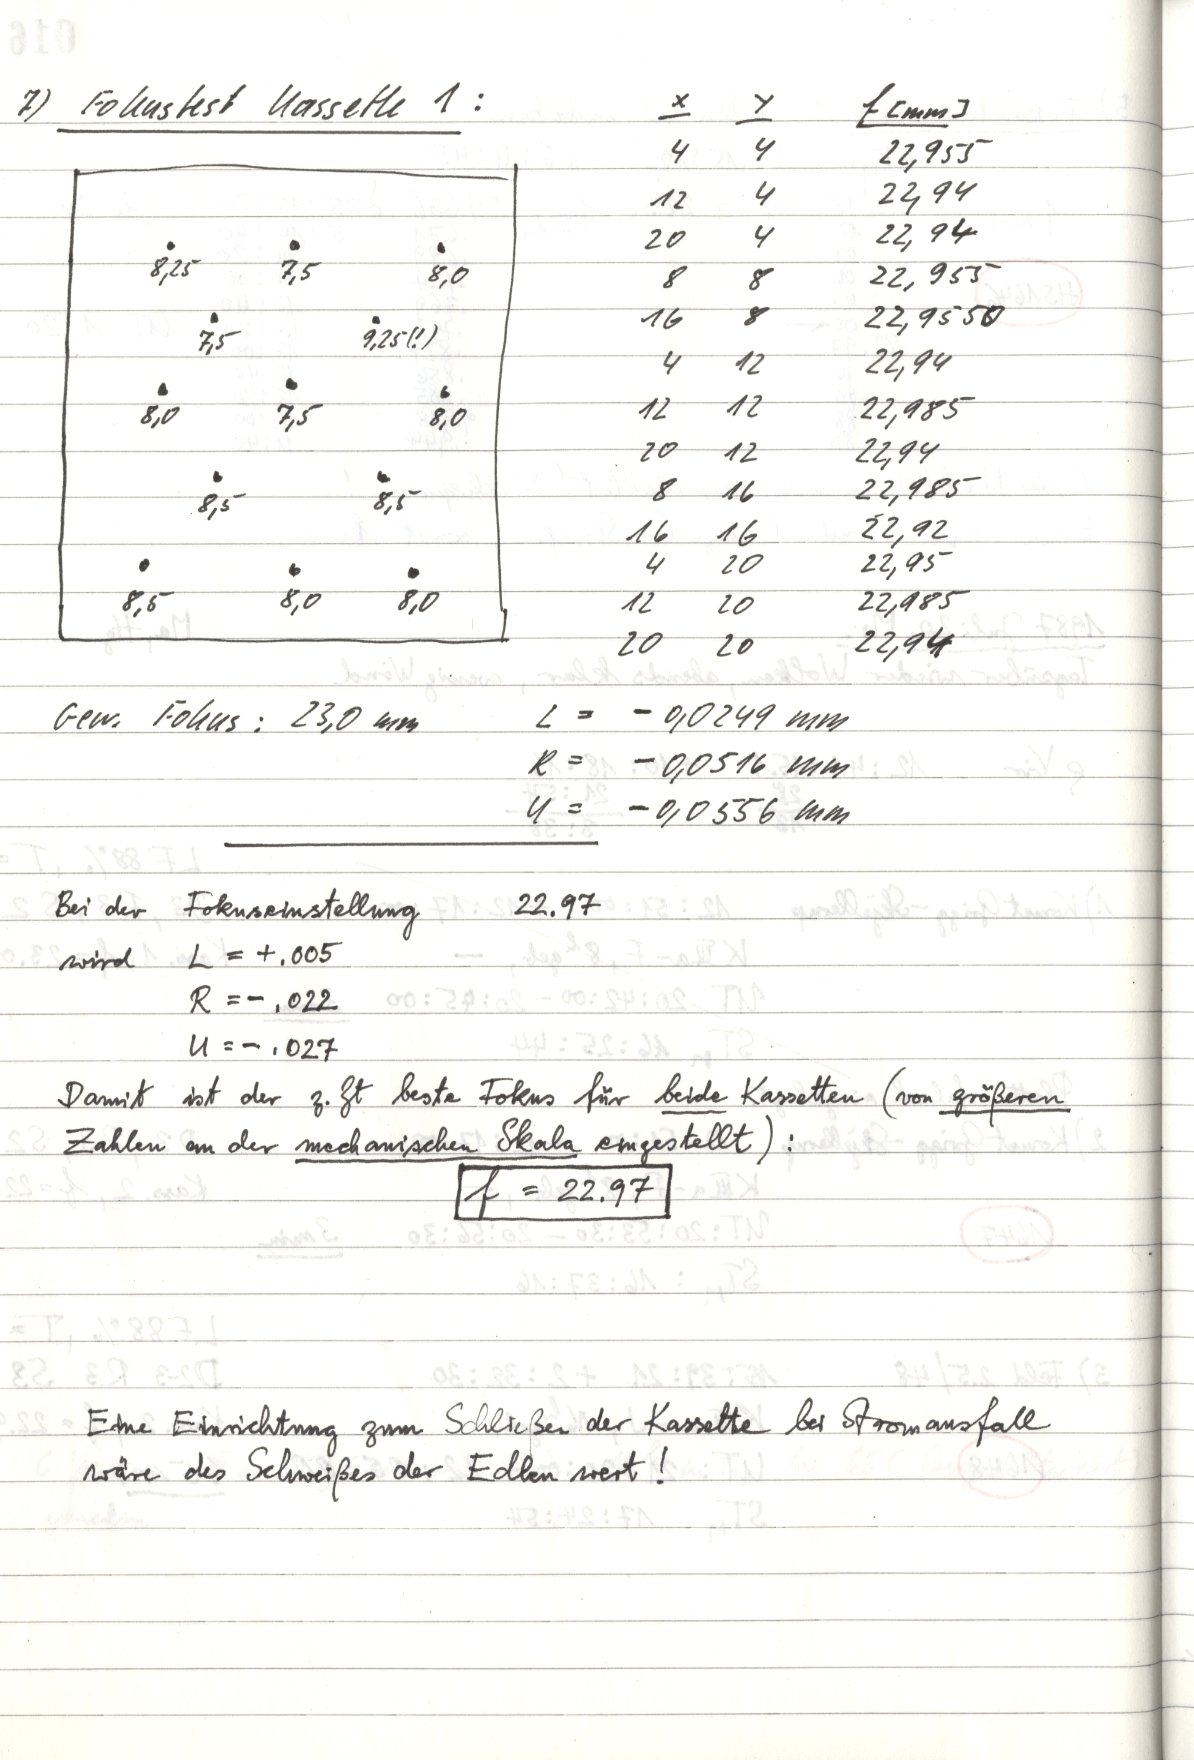 7) Fokustest Kassette 1:
x y f [mm]
4 4 22,955
12 4 22,94
20 4 22,94
8 8 22,955
16 8 22,9550
4 12 22,94
12 12 22,985
20 12 22,94
8 16 22,985
16 16 22,92
4 20 22,95
12 20 22,985
20 20 22,94
8,25 7,5 8,0
7,5 9,25(!)
8,0 7,5 8,0
8,5 8,5
8,5 8,0 8,0
Gew. Fokus: 23,0 mm L = -0,0249 mm
R = -0,0516 mm
U = -0,0556 mm
Bei der Fokuseinstellung 22.97
wird L = +.005
R = -.022
U = -.027
Damit ist der z. Zt beste Fokus für beide Kassetten (von größeren
Zahlen an der mechanischen Skala eingestellt):
f = 22.97
Eine Einrichtung zum Schließen der Kassette bei Stromausfall
wäre des Schweißes der Edlen wert!